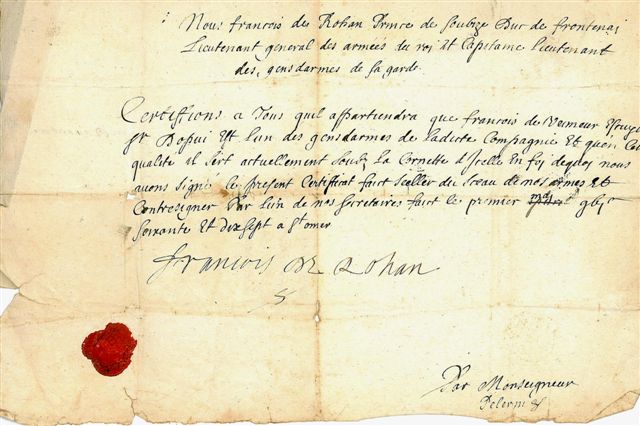 Nous francois de Rohan Prince de Soubize Duc de frontenai
Lieutenant general des armées du roi Et Capitaine Lieutenant
des gensdarmes de sa garde.
Certiffions a Tous quil appartiendra que francois de
Sr Est lun des gensdarmes de ladicte Compagnie Et quen
qualite il sert actuellement soubz la Cornette d'Icelle En foy dequoy nous
avons signé le present Certificat faict Sceller du Sceau de nos armes Et
Contresigner Par lun de nos Secretaires faict le premier
Soixante Et dixsept a St omer
francois de Rohan
Par Monseigneur